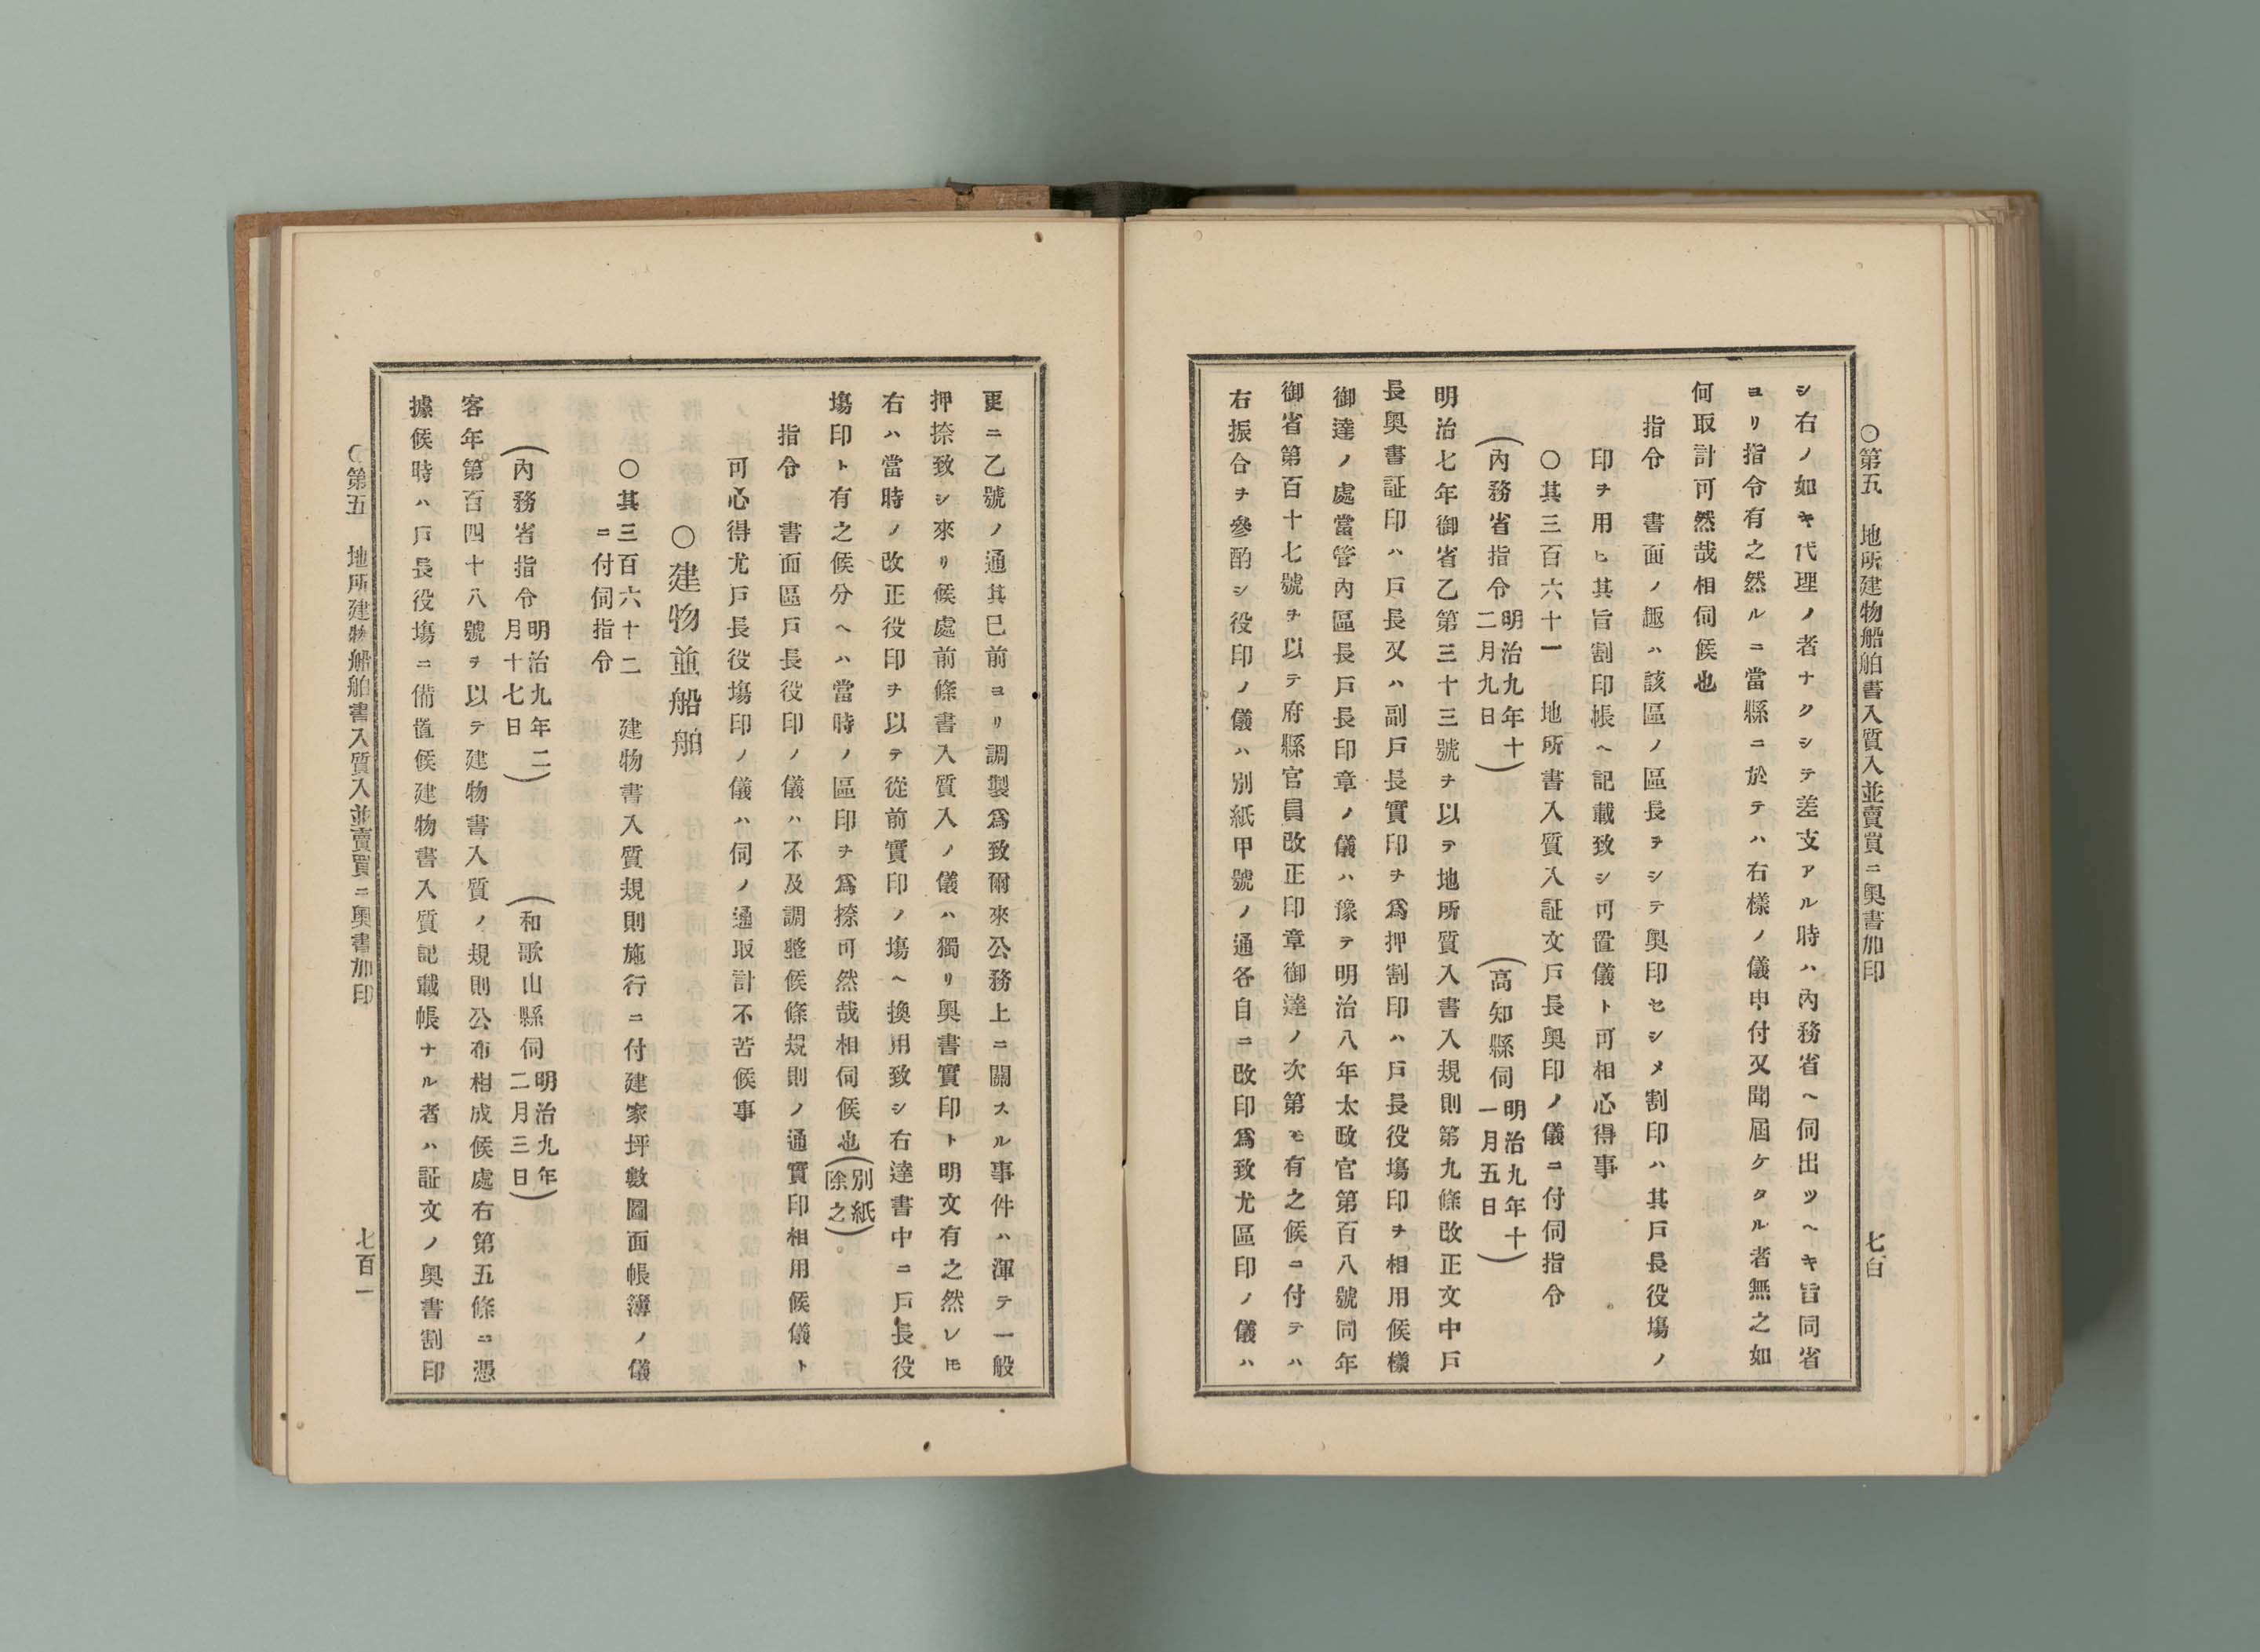 ○第五　地所建物船舶書入質入並賣買ニ奧書加印　七百
シ右ノ如キ代理ノ者ナクシテ差支アル時ハ內務省ヘ伺出ツヘキ旨同省
ヨリ指令有之然ルニ當縣ニ於テハ右樣ノ儀申付又聞屆ケタル者無之如
何取計可然哉相伺候也
指令　書面ノ趣ハ該區ノ區長ヲシテ奧印セシメ割印ハ其戶長役塲ノ
印ヲ用ヒ其旨割印帳ヘ記載致シ可置儀ト可相心得事
○其三百六十一　地所書入質入証文戶長奧印ノ儀ニ付伺指令
（內務省指令明治九年十二月九日）　（高知縣伺明治九年十一月五日）
明治七年御省乙第三十三號ヲ以テ地所質入書入規則第九條改正文中戶
長奧書証印ハ戶長又ハ副戶長實印ヲ爲押割印ハ戶長役塲印ヲ相用候樣
御達ノ處當管內區長戶長印章ノ儀ハ豫テ明治八年太政官第百八號同年
御省第百十七號ヲ以テ府縣官員改正印章御達ノ次第モ有之候ニ付テハ
右振合ヲ參酌シ役印ノ儀ハ別紙甲號ノ通各自ニ改印爲致尤區印ノ儀ハ
更ニ乙號ノ通其已前ヨリ調製爲致爾來公務上ニ關スル事件ハ渾テ一般
押捺致シ來リ候處前條書入質入ノ儀ハ獨リ奧書實印ト明文有之然レ𪜈
右ハ當時ノ改正役印ヲ以テ從前實印ノ塲ヘ換用致シ右達書中ニ戶長役
塲印ト有之候分ヘハ當時ノ區印ヲ爲捺可然哉相伺候也（別紙除之）
指令　書面區戶長役印ノ儀ハ不及調整候條規則ノ通實印相用候儀ト
可心得尤戶長役塲印ノ儀ハ伺ノ通取計不苦候事
○建物並船舶
○其三百六十二　建物書入質規則施行ニ付建家坪數圖面帳簿ノ儀
ニ付伺指令
（內務省指令明治九年二月十七日）　（和歌山縣伺明治九年二月三日）
客年第百四十八號ヲ以テ建物書入質ノ規則公布相成候處右第五條ニ憑
據候時ハ戶長役塲ニ備置候建物書入質記載帳ナル者ハ証文ノ奧書割印
○第五　地所建物船舶書入質入並賣買ニ奧書加印　七百一